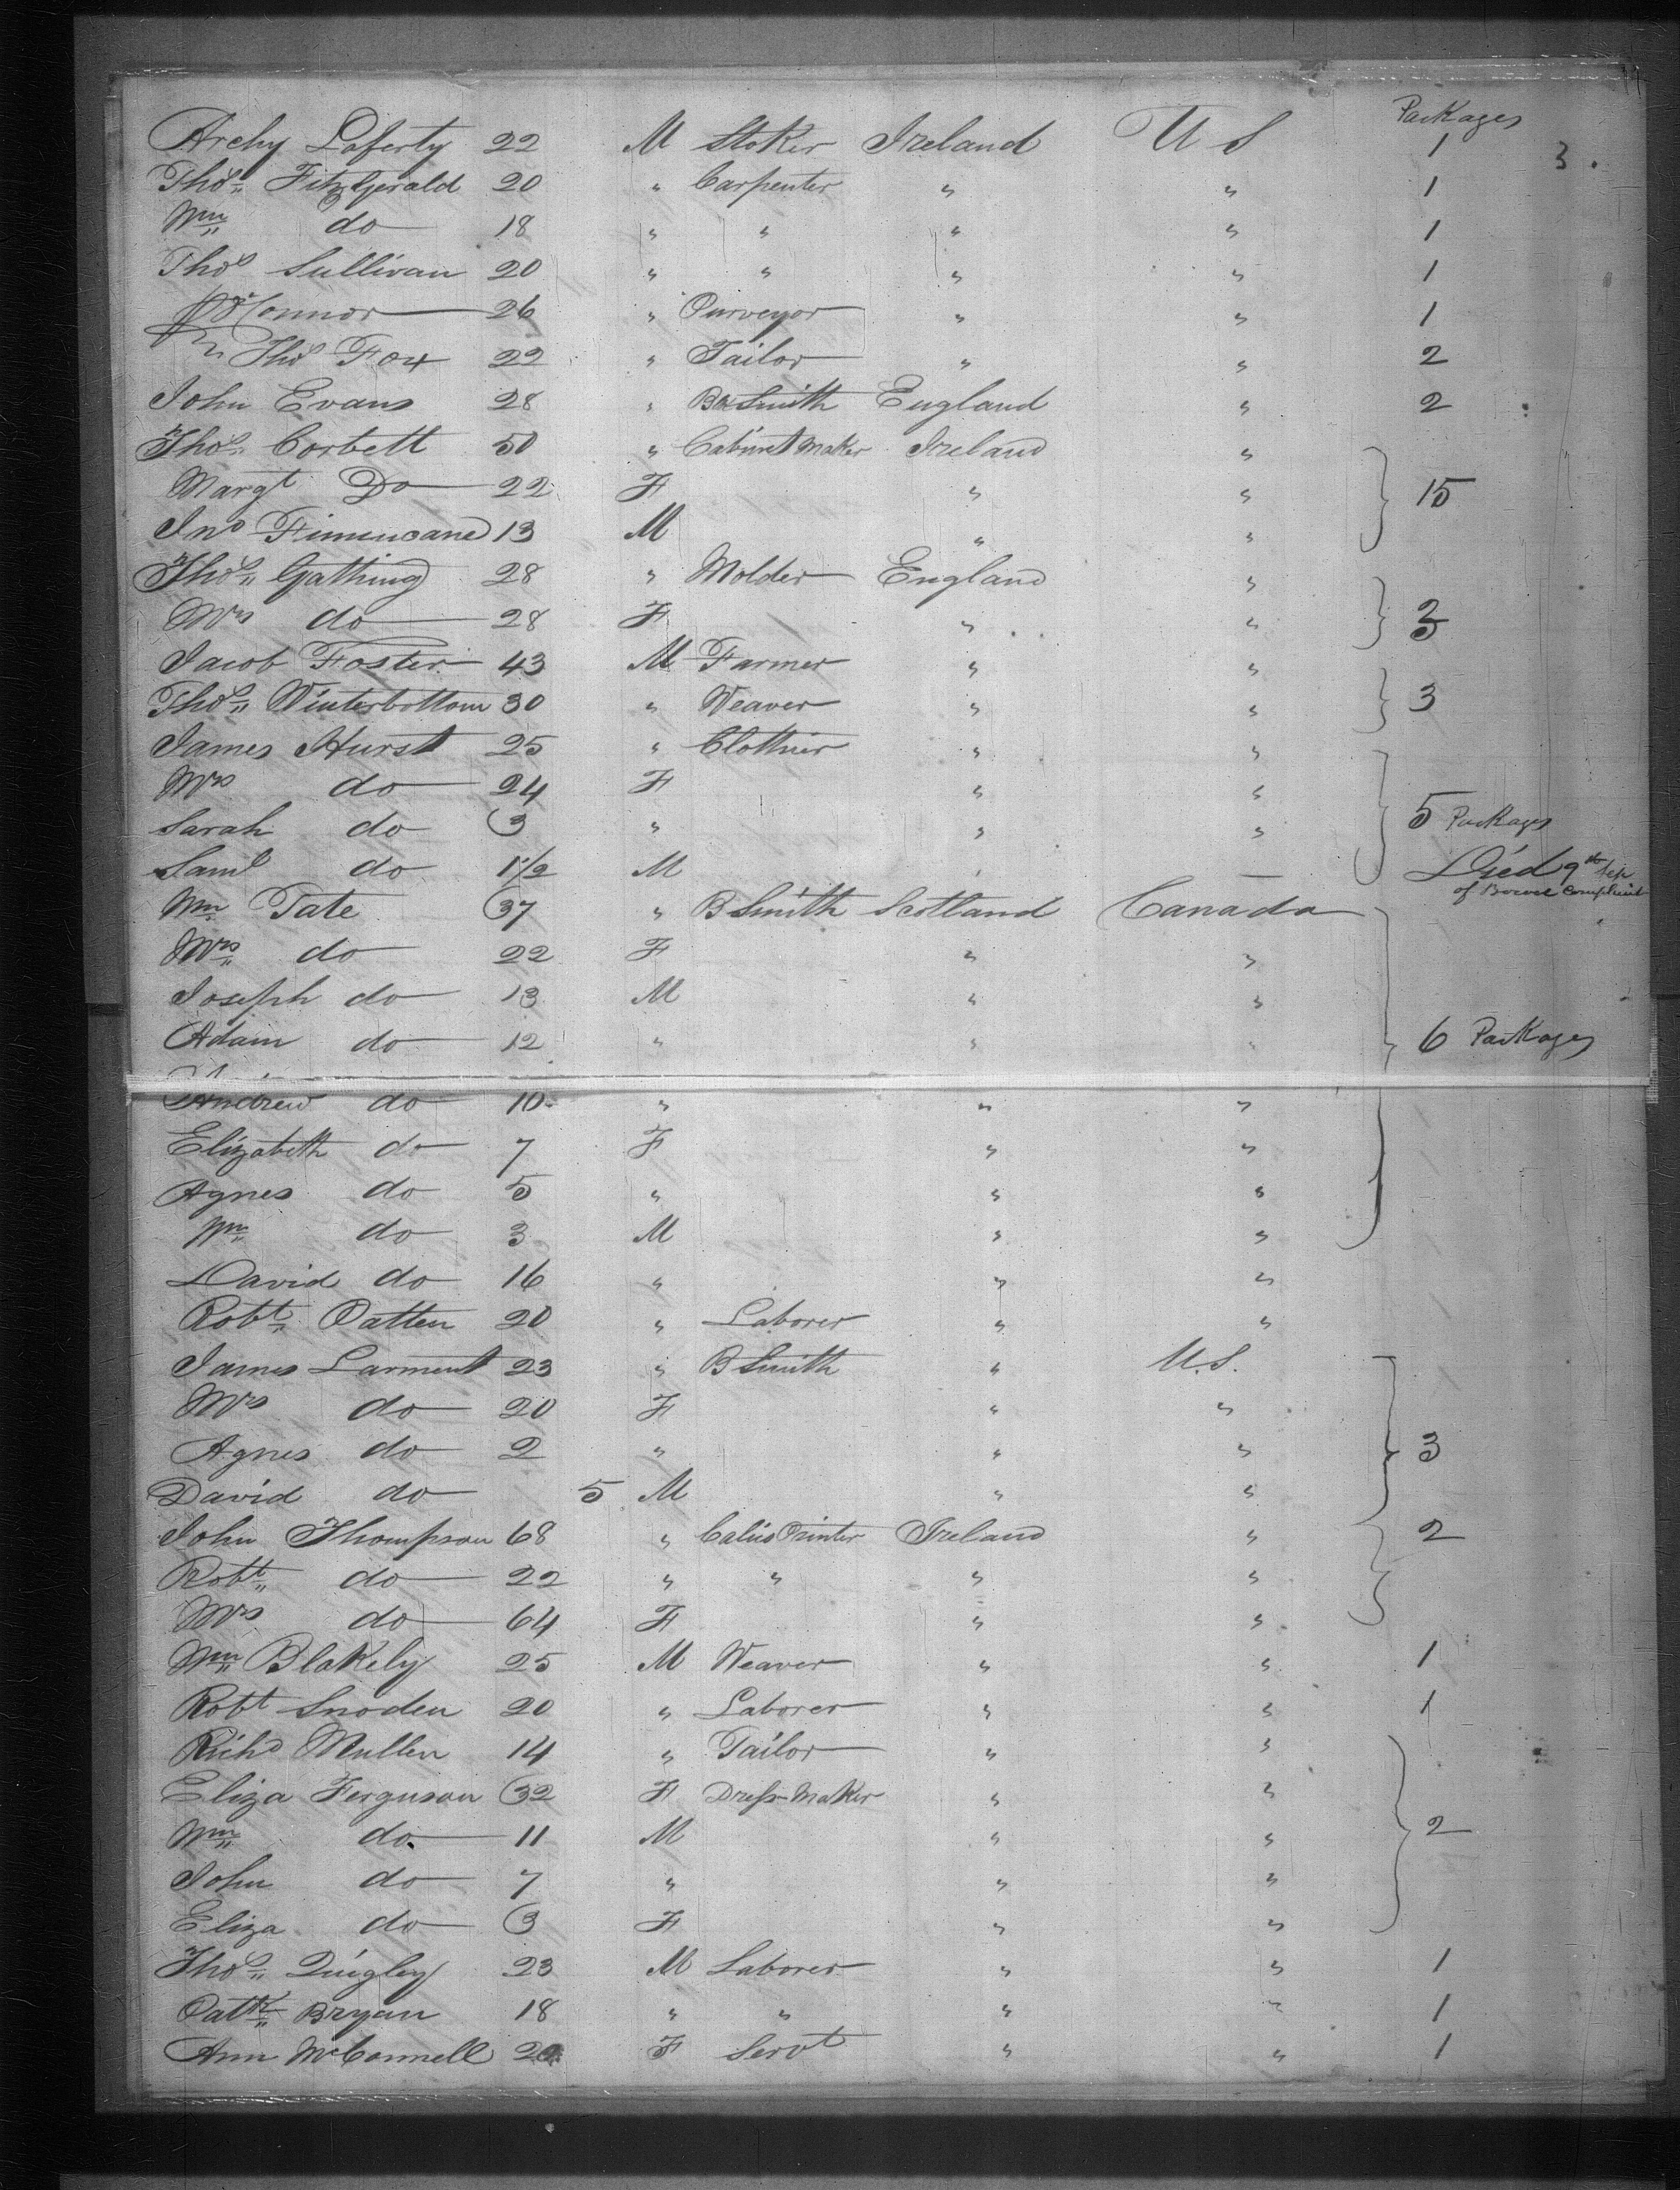 Packages
3.
Archy Laferty 22 M Stoker Ireland U S 1
Thos Fitzgerald 20 " Carpenter " " 1
Wm do 18 " " " " 1
Thos Sullivan 20 " " " " 1
O'Connor 26 " Purveyor " " 1
Thos Fox 22 " Tailor " " 2
John Evans 28 " Smith England " 2
Thos Corbett 50 " Cabinet Maker Ireland "
Margt Do 22 F " " 15
Jno Finnucane 13 M " "
Thos Gathing 28 " Molder England "
Mrs do 28 F " "
Jacob Foster 43 M Farmer " "
Thos Winterbottom 30 " Weaver " " 3
James Hurst 25 " Clothier " "
Mrs do 24 F " "
Sarah do 3 " " " 5 Packages
Saml do 1 1/2 M " — Died 9th Sep
of Bowel Complaint
Wm Tate 37 " B Smith Scotland Canada
Mrs do 22 F " "
Joseph do 13 M " "
Adam do 12 " " " 6 Packages
Andrew do 10 " " "
Elizabeth do 7 F " "
Agnes do 5 " " "
Wm do 3 M " "
David do 16 " " "
Robt Patten 20 " Laborer " "
James Larment 23 " B Smith " U.S.
Mrs do 20 F " "
Agnes do 2 " " " 3
David do 5 M " "
John Thompson 68 " Calico Printer Ireland " 2
Robt do 22 " " " "
Mrs do 64 F " "
Wm Blakely 25 M Weaver " " 1
Robt Snoden 20 " Laborer " " 1
Richd Mullen 14 " Tailor " "
Eliza Ferguson 32 F Dress Maker " "
Wm do 11 M " " 2
John do 7 " " "
Eliza do 3 F " "
Thos Quigley 23 M Laborer " " 1
Patk Bryan 18 " " " " 1
Ann McConnell 20 F Servt " " 1